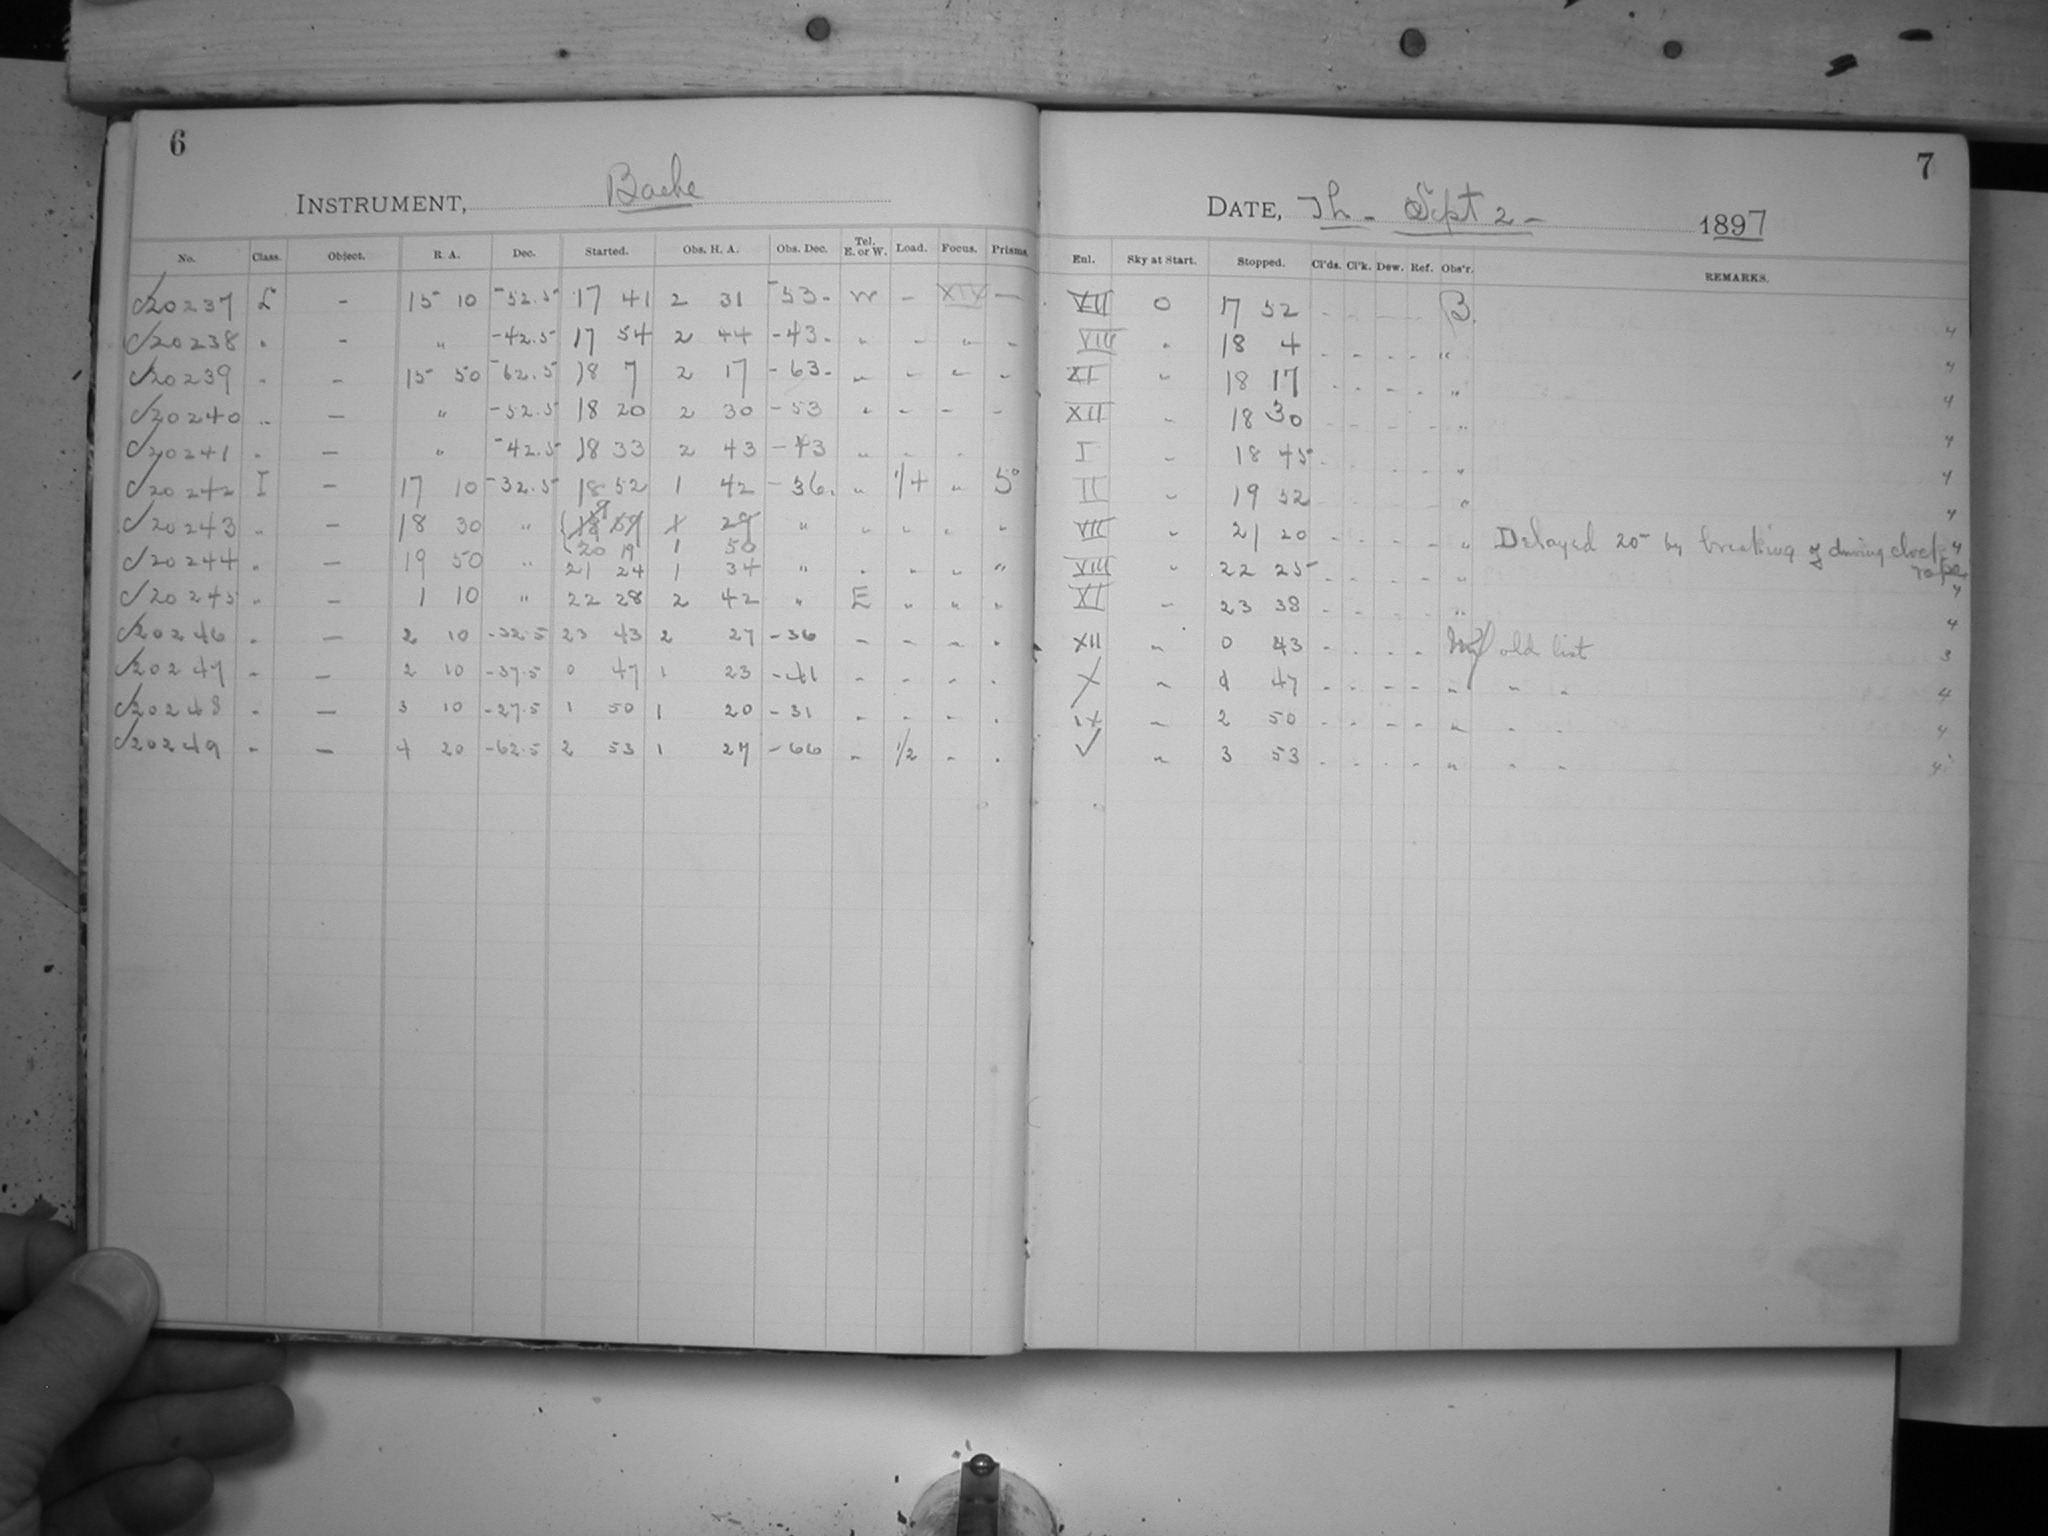 6
INSTRUMENT, Bache
No. Class. Object. R. A. Dec. Started. Obs. H. A. Obs. Dec. Tel. E. or W. Load. Focus. Prisms.
20237 L - 15 10 -52.5 17 41 2 31 -53- W - XIX -
20238 " - " -42.5 17 54 2 44 -43- " - " "
20239 " - 15 50 -62.5 18 7 2 17 -63- " - " "
20240 " - " -52.5 18 20 2 30 -53 " - - -
20241 " - " -42.5 18 33 2 43 -43 " - "
20242 I - 17 10 -32.5 18 52 1 42 -36. " 1/4 " 5°
20243 " - 18 30 " 1 29 " " " " "
20 19 1 50
20244 " - 19 50 " 21 24 1 34 " " " " "
20245 " - 1 10 " 22 28 2 42 " E " " "
20246 " - 2 10 -32.5 23 43 2 27 -36 " " " "
20247 " - 2 10 -37.5 0 47 1 23 -41 " " " "
20248 " - 3 10 -27.5 1 50 1 20 -31 " " " "
20249 " - 4 20 -62.5 2 53 1 27 -66 " 1/2 " "
7
DATE, Th - Sept 2 - 1897
Enl. Sky at Start. Stopped. Cl'ds. Cl'k. Dew. Ref. Obs'r. REMARKS.
XII 0 17 52 - - - - B.
VIII " 18 4 - - - - " 4
XI " 18 17 - - - - " 4
XII " 18 30 - - - - " 4
I " 18 45 - - - - " 4
II " 19 52 - - - - " 4
VII " 21 20 - - - - " Delayed 20- by breaking of driving clock 4
rope
VIII " 22 25 - - - - " 4
XI " 23 38 - - - - " 4
XII " 0 43 - - - - old list 3
X " 47 - - - - " " " 4
IX " 2 50 - - - - " " " 4
V " 3 53 - - - - " " " 4